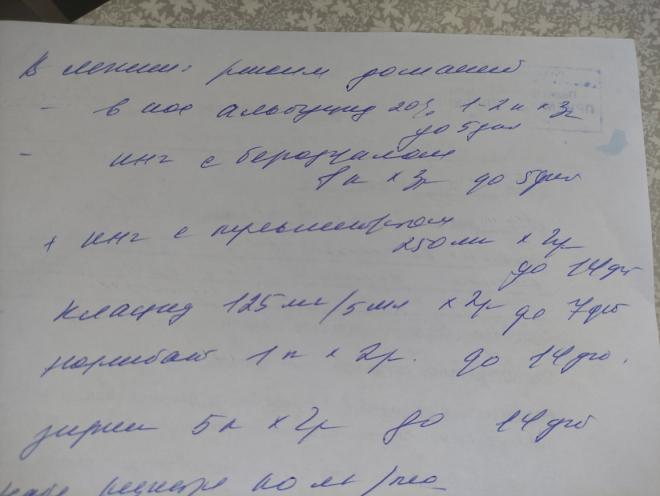 В лечении: режим домашний
- в нос альбуцид 20% 1-2к х 3р
до 5 дней
- инг с беродуалом
8к х 3р до 5 дней
+ инг с пульмикортом
250 мг х 2р
до 14 дней
клацид 125мг/5мл х 2р до 7 дней
нормобакт 1п х 2р. до 14 дн.
зиртек 5к х 2р до 14 дней
по